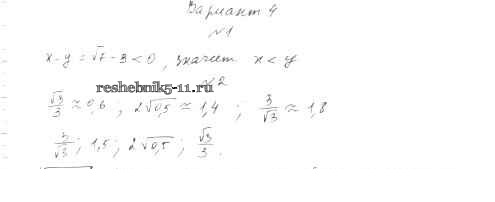 Вариант 4
№1
x-y = √7 - 3 < 0, значит x < y
№2
reshebnik5-11.ru
√3/3 ≈ 0,6 ; 2√0,5 ≈ 1,4 ; 3/√3 ≈ 1,8
3/√3 ; 1,5 ; 2√0,5 ; √3/3 .